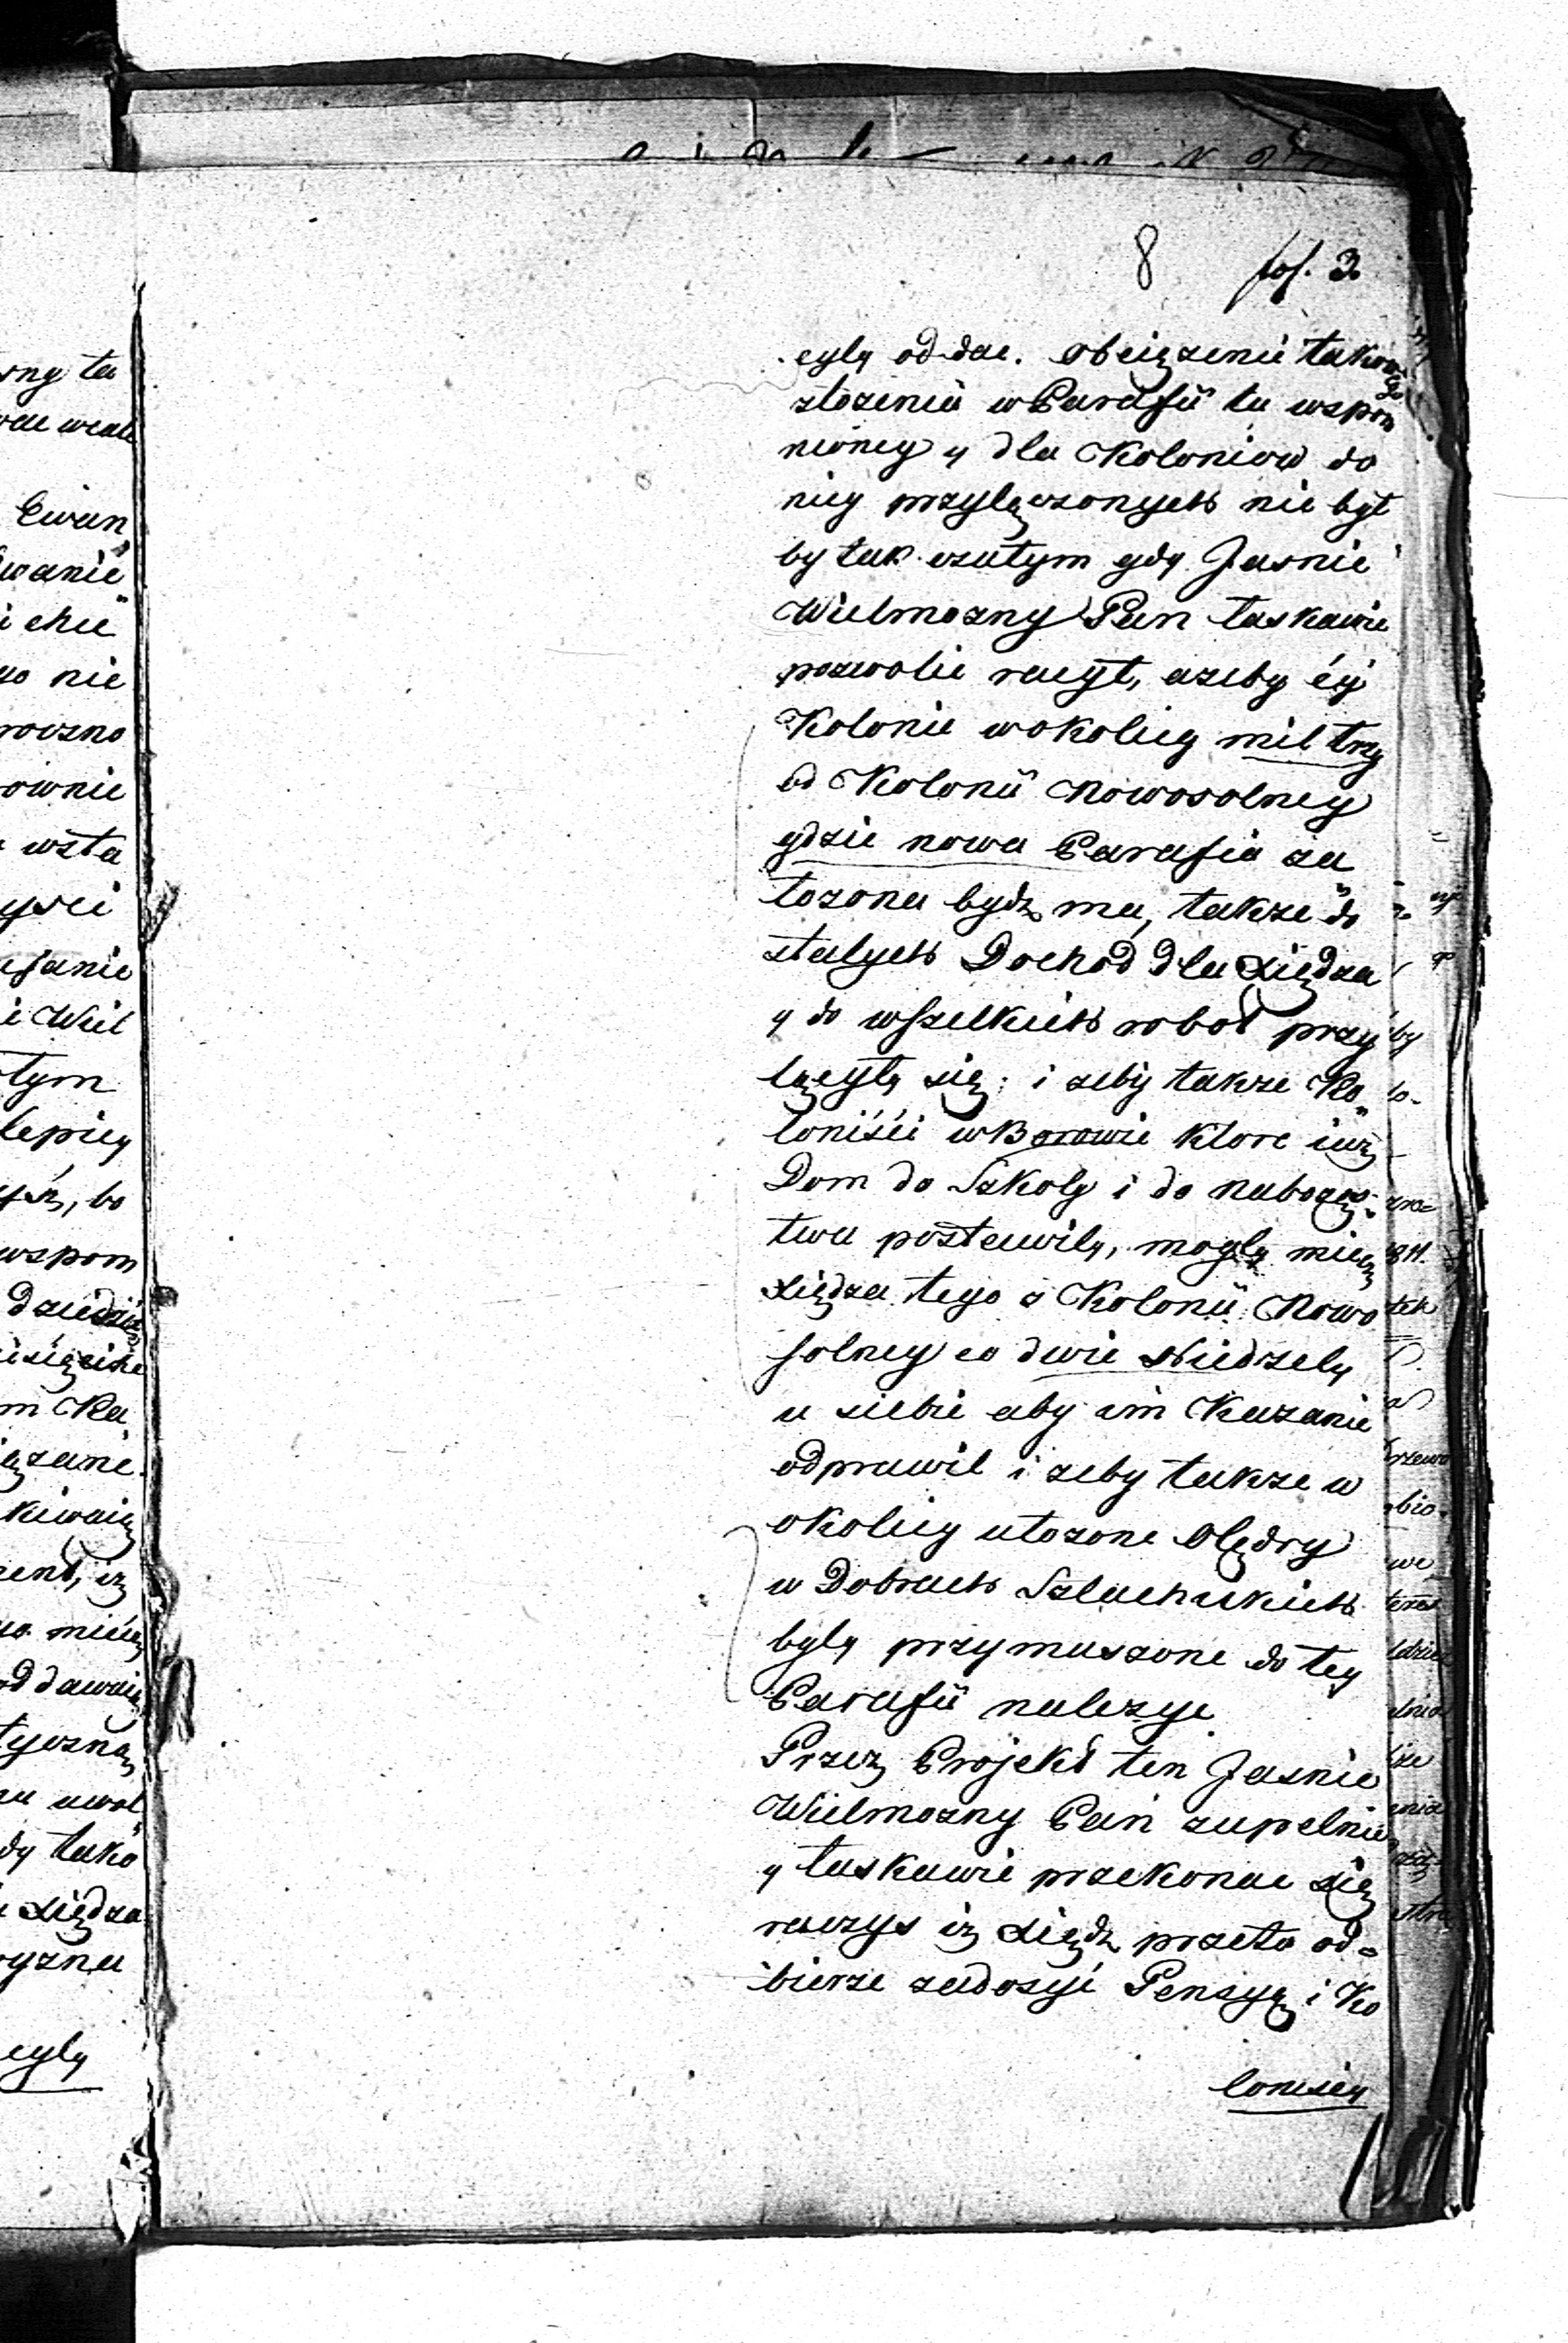 8 fol. 3.
cylỳ oddac. Obciązenié takowego
złozenia w Parafii tu wspom
nioney y dla Koloniow do
niey przyłączonych nie był
by tak czułym gdy Jasnie
Wielmozny Pan łaskawie
pozwolic raczył, azeby ciy
Kolonie w okolicy mil trzy
od Kolonii Nowosolney
gdzie nowa Parafia za
łozona bydz ma, takze do
stałych Dochod dla Xiędza
y do wszelkich robot przy
łączyły się; i zeby takze Ko
loniści w Borowie ktore iuz
Dom do Szkoly i do nabozęs-
twa postawily, mogly miec
Xiędza tego z Kolonii Nowo
solney co dwie Niedzely
u siebie aby im Kazanie
odprawil i zeby takze w
okolicy ułozone Olędry
w Dobrach Szlacheckich
były przymuszone do tey
Parafii nalezyc
Przez Projekt ten Jasnie
Wielmozny Pan zupelnie
y łaskawie przekonac się
raczys iz Xiędz przeto od=
bierze zadosyć Pensyą i Ko
loniscy
sny ta
Ewan
wanié
i chce
nie
roczno
ownie
wsta
i Wiel
tym
lepiey
bo
wspom
m Ka
kiwaią
oddawaią
tyczną
uwol
dy tako
Xiędza
cyly
by
lo-
1811.